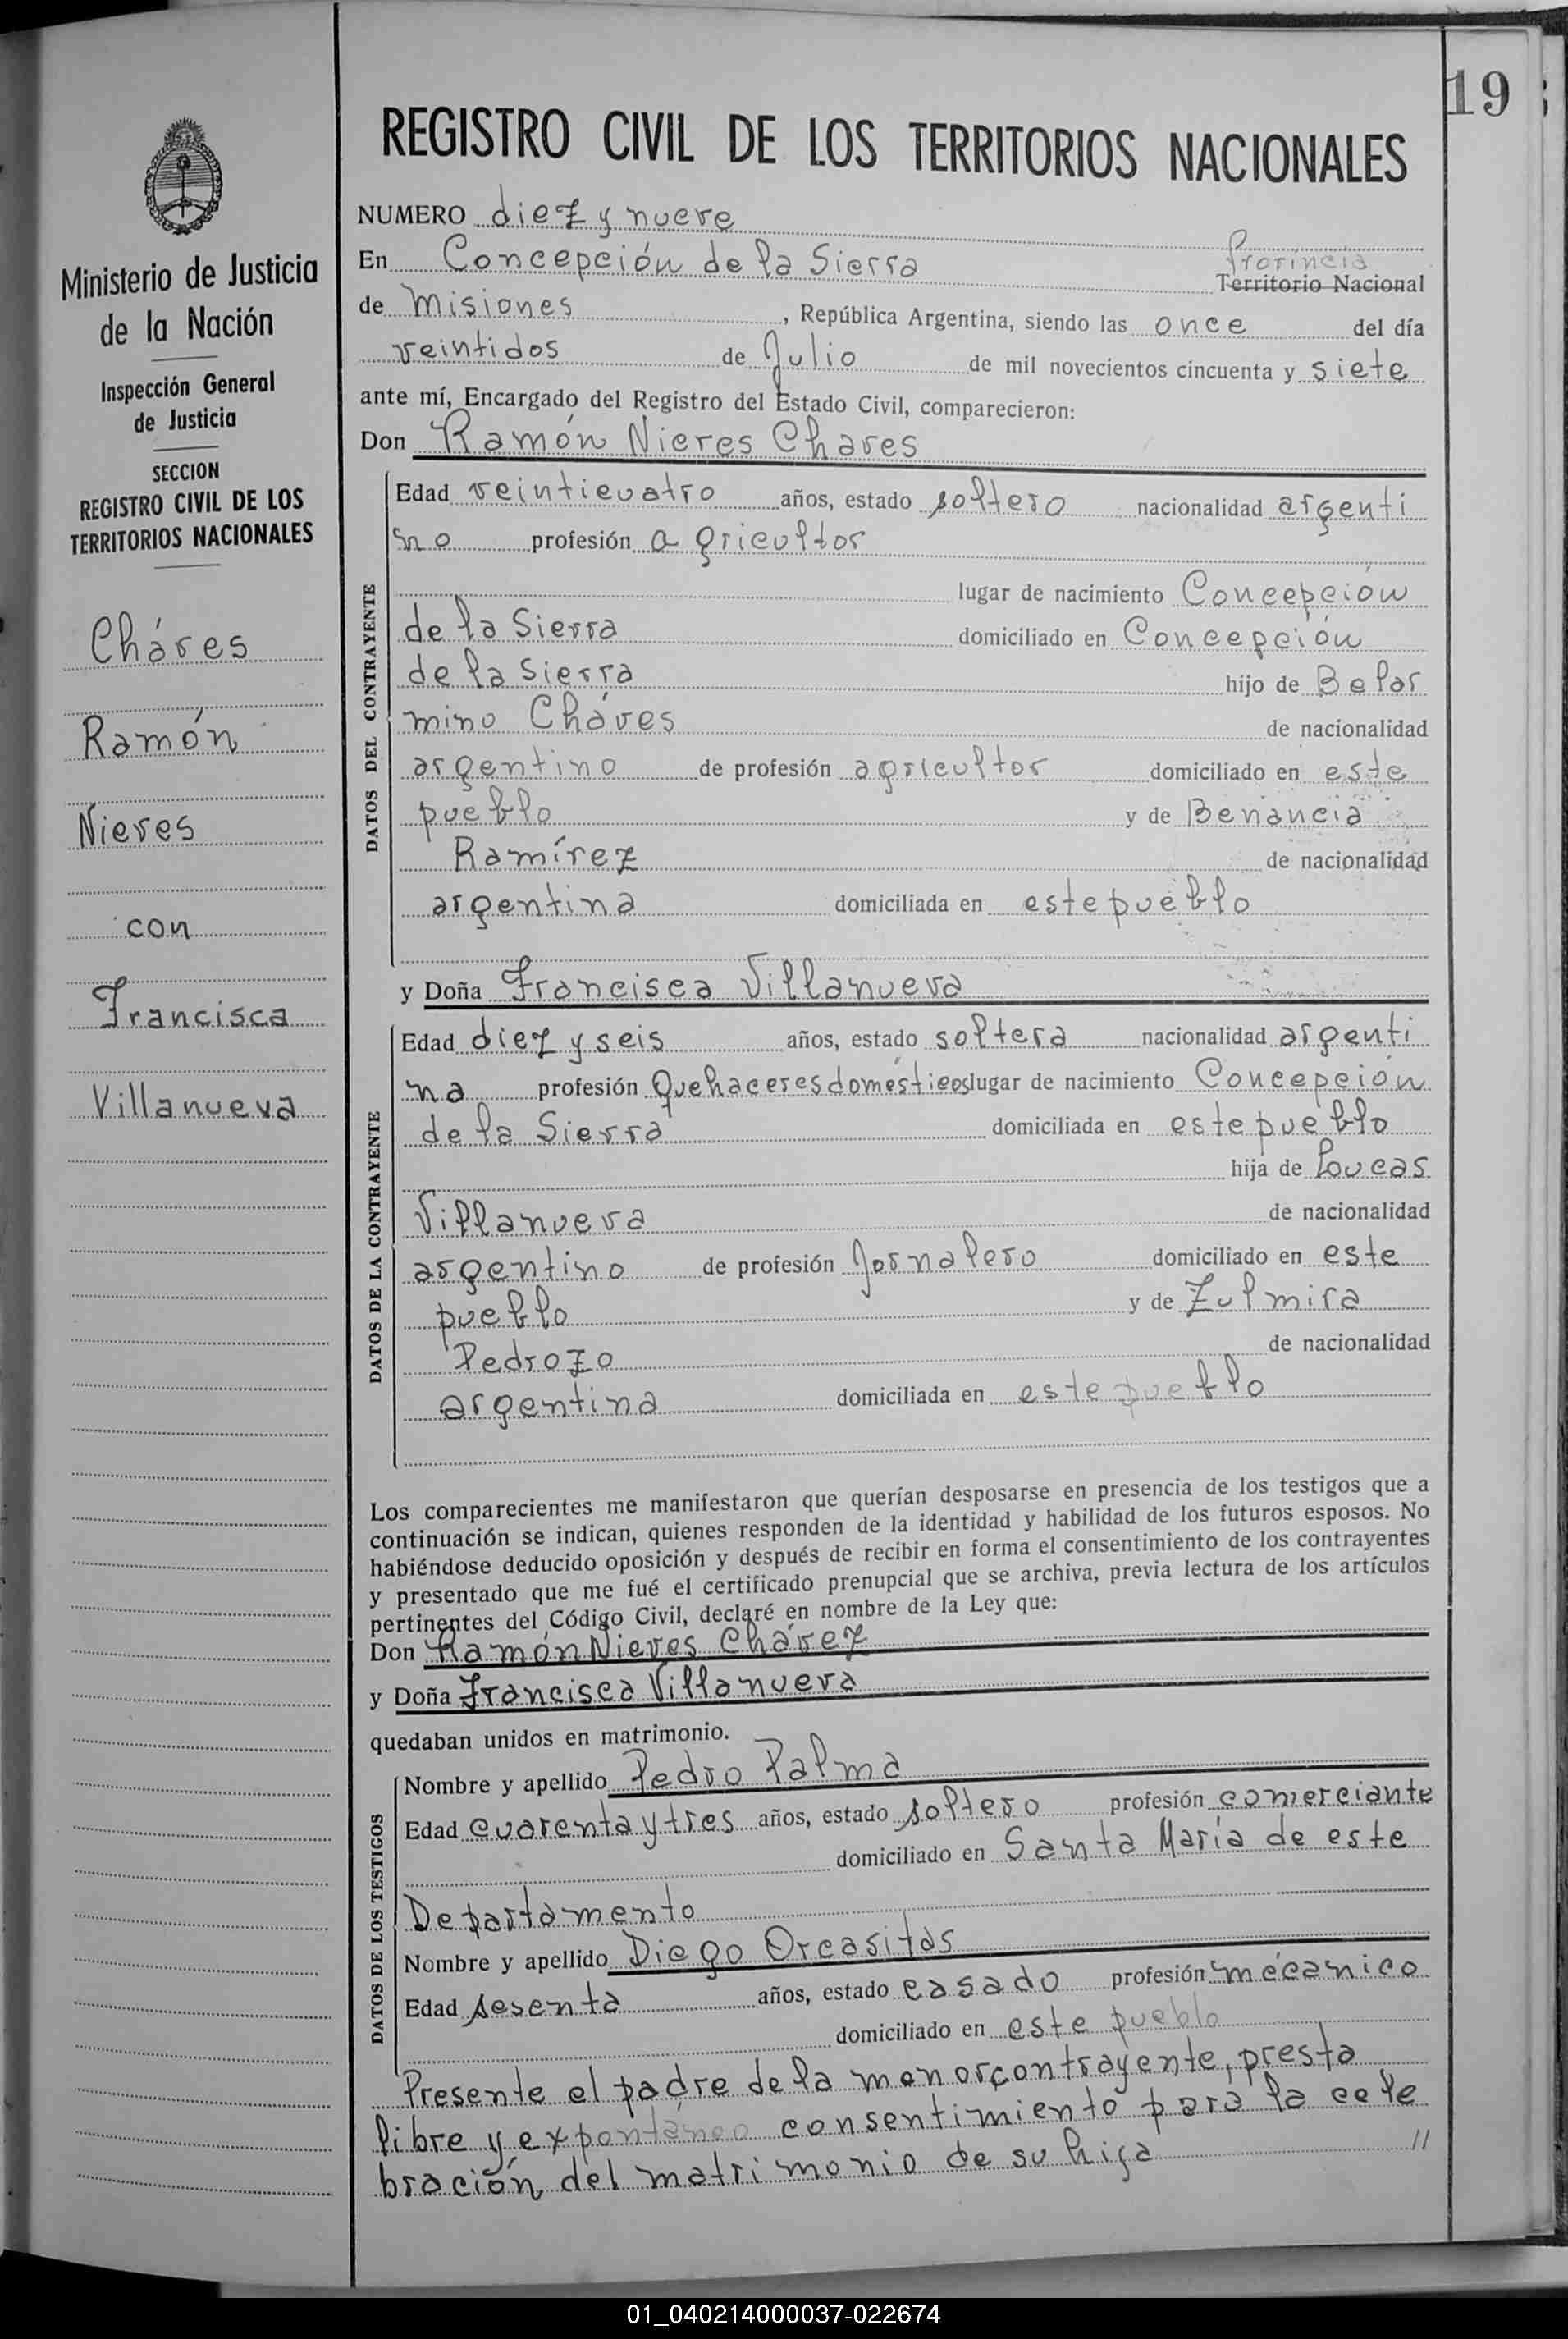 19
Ministerio de Justicia
de la Nación
Inspección General
de Justicia
SECCION
REGISTRO CIVIL DE LOS
TERRITORIOS NACIONALES
Cháves
Ramón
Nieves
con
Francisca
Villanueva
REGISTRO CIVIL DE LOS TERRITORIOS NACIONALES
NUMERO diez y nueve
Provincia
En Concepción de la Sierra Territorio Nacional
de Misiones, República Argentina, siendo las once del día
veintidos de Julio de mil novecientos cincuenta y siete
ante mí, Encargado del Registro del Estado Civil, comparecieron:
Don Ramón Nieves Chaves
DATOS DEL CONTRAYENTE
Edad veinticuatro años, estado soltero nacionalidad argenti
no profesión agricultor
lugar de nacimiento Concepción
de la Sierra domiciliado en Concepción
de la Sierra hijo de Belar
mino Cháves de nacionalidad
argentino de profesión agricultor domiciliado en este
pueblo y de Benancia
Ramírez de nacionalidad
argentina domiciliada en este pueblo
y Doña Francisca Villanueva
DATOS DE LA CONTRAYENTE
Edad diez y seis años, estado soltera nacionalidad argenti
na profesión Quehaceres domésticos lugar de nacimiento Concepción
de la Sierra domiciliada en este pueblo
hija de Loucas
Villanueva de nacionalidad
argentino de profesión Jornalero domiciliado en este
pueblo y de Zulmira
Pedrozo de nacionalidad
argentina domiciliada en este pueblo
Los comparecientes me manifestaron que querían desposarse en presencia de los testigos que a
continuación se indican, quienes responden de la identidad y habilidad de los futuros esposos. No
habiéndose deducido oposición y después de recibir en forma el consentimiento de los contrayentes
y presentado que me fué el certificado prenupcial que se archiva, previa lectura de los artículos
pertinentes del Código Civil, declaré en nombre de la Ley que:
Don Ramón Nieves Chávez
y Doña Francisca Villanueva
quedaban unidos en matrimonio.
DATOS DE LOS TESTIGOS
Nombre y apellido Pedro Palma
Edad cuarenta y tres años, estado soltero profesión comerciante
domiciliado en Santa María de este
Departamento
Nombre y apellido Diego Orcasitas
Edad sesenta años, estado casado profesión mecánico
domiciliado en este pueblo
Presente el padre de la menor contrayente, presta
libre y expontáneo consentimiento para la cele
bración del matrimonio de su hija //
01_040214000037-022674